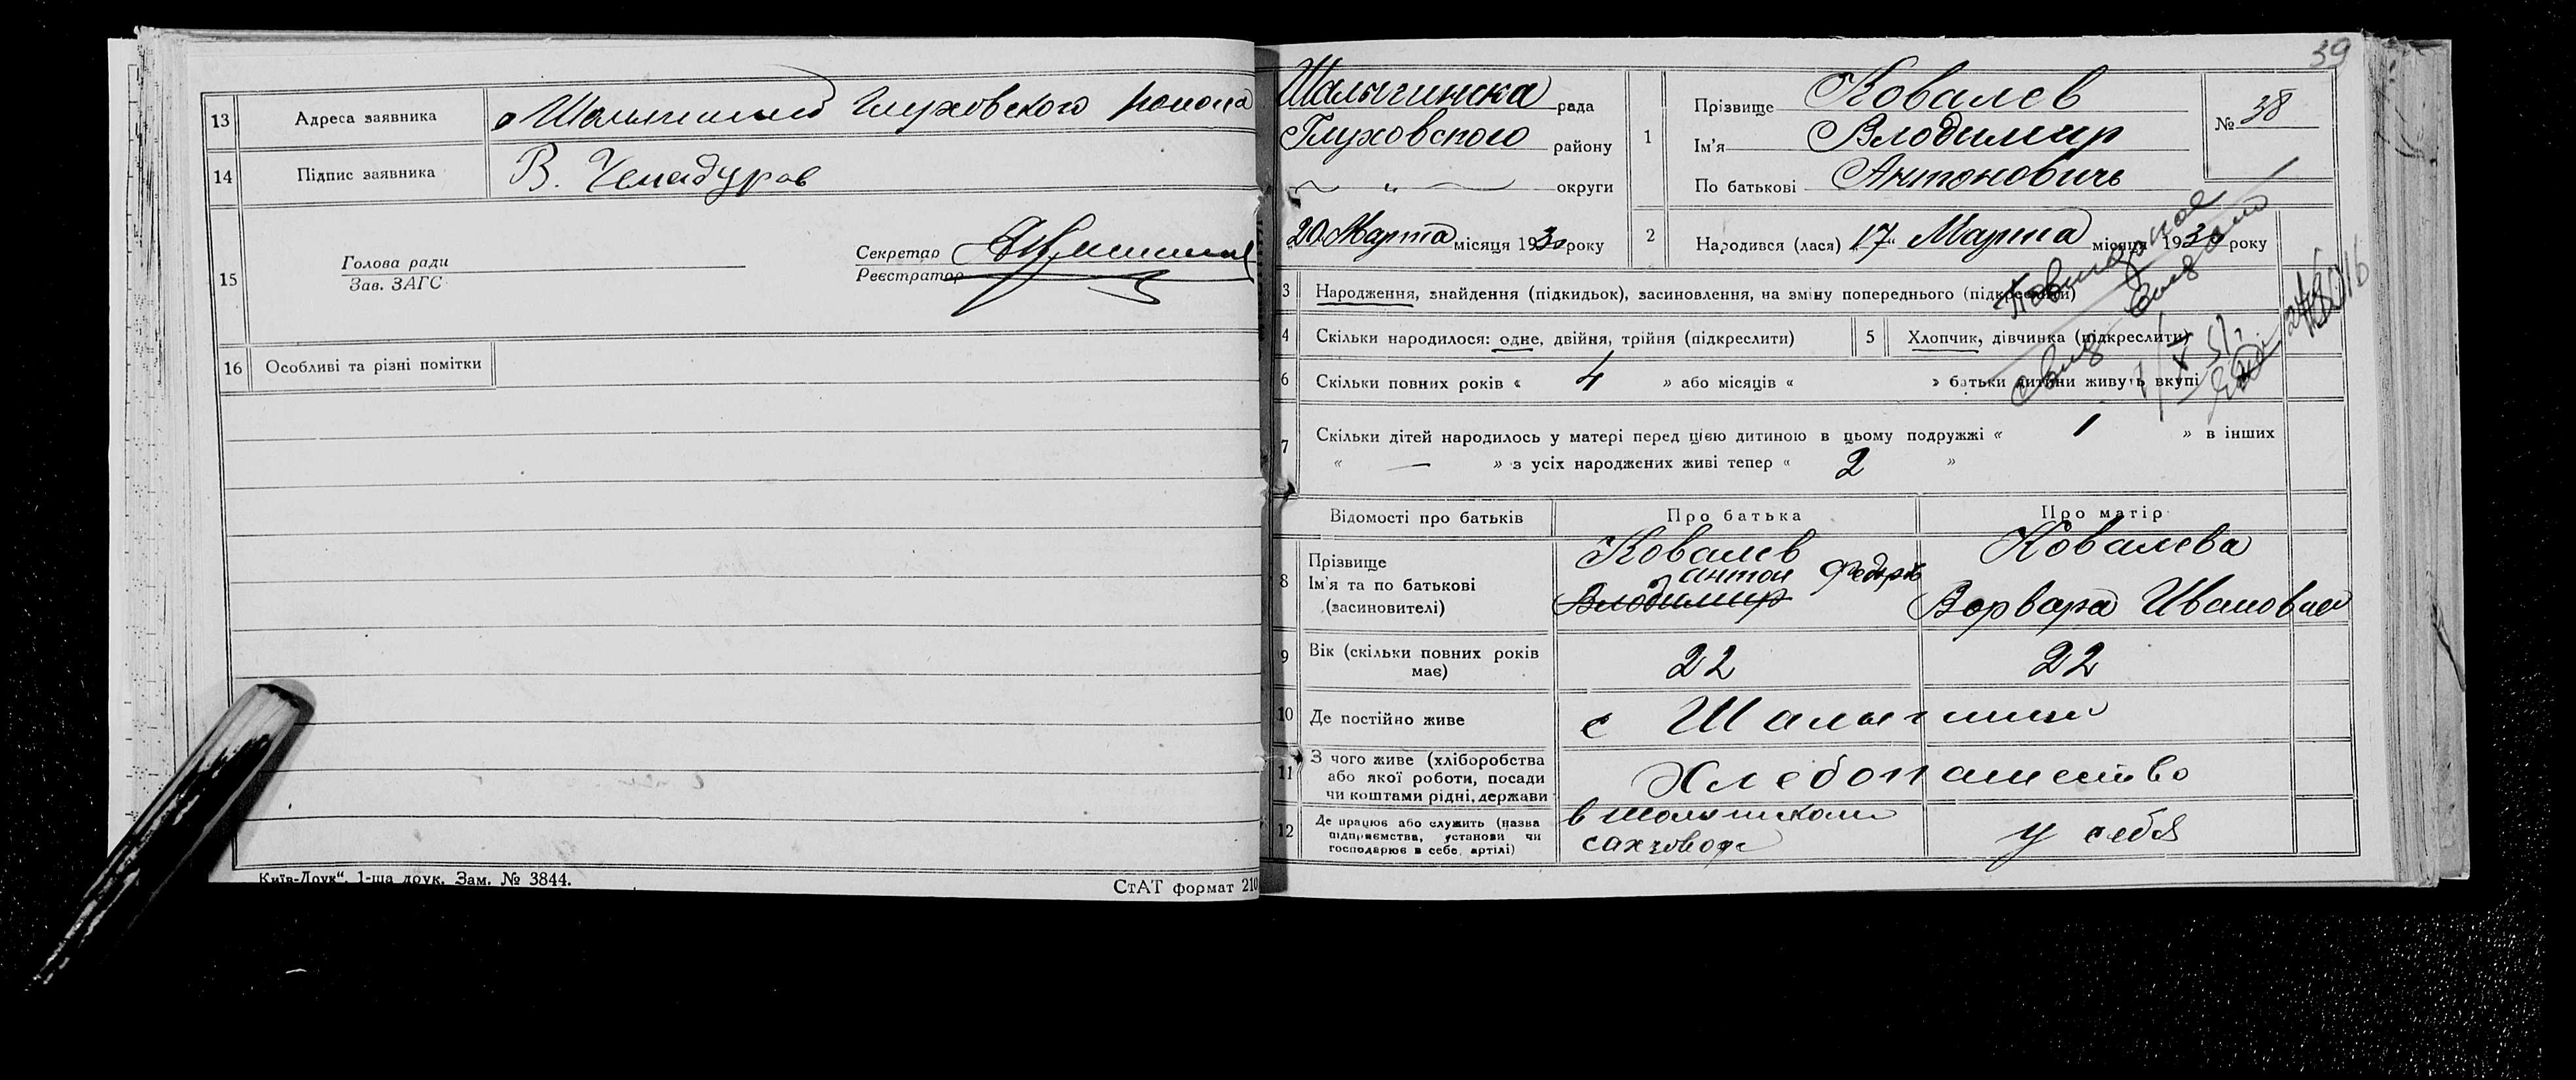 13 Адреса заявника Глуховского района
14 Підпис заявника В. Чемадуров
15 Голова ради
Зав. ЗАГС
Секретар
Реєстратор
16 Особливі та різні помітки
Київ-Друк“. 1-ша друк. Зам. № 3844.
СтАТ формат 210
39
Шалыгинска рада
Глуховского району
" округи
20 Марта місяця 1930 року
1 Прізвище Ковалев
Ім'я Влодимир
По батькові Антоновичь
№ 38
2 Народився (лася) 17 Марта місяця 1930 року
3 Народження, знайдення (підкидьок), засиновлення, на зміну попереднього (підкреслити)
4 Скільки народилося: одне, двійня, трійня (підкреслити) 5 Хлопчик, дівчинка (підкреслити)
6 Скільки повних років « 4 » або місяців « » батьки дитини живуть вкупі
7 Скільки дітей народилось у матері перед цією дитиною в цьому подружжі « 1 » в інших
« — » з усіх народжених живі тепер « 2 »
Відомості про батьків Про батька Про матір
8 Прізвище
Ім'я та по батькові
(засиновителі)
Ковалев
Антон
Влодимир
Ковалева
Варвара Ивановна
9 Вік (скільки повних років має) 22 22
10 Де постійно живе с Шалыгино
11 З чого живе (хліборобства
або якої роботи, посади
чи коштами рідні, держави
Хлебопашество
12 Де працює або служить (назва
підприємства, установи чи
господарює в себе, артілі)
в
сахзаводе
у себя